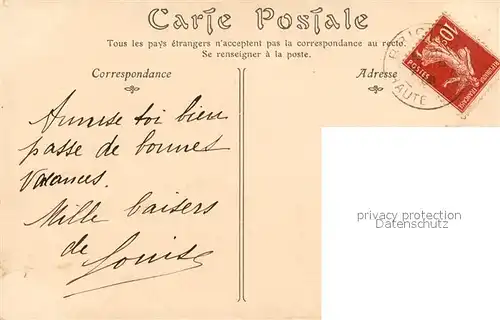 Carte Postale
Tous les pays étrangers n'acceptent pas la correspondance au recto.
Se renseigner à la poste.
Correspondance
Adresse
Amuse toi bien
passe de bonnes
vacances.
Mille baisers
de
Louise
10c
POSTES
HAUTE
privacy protection
Datenschutz